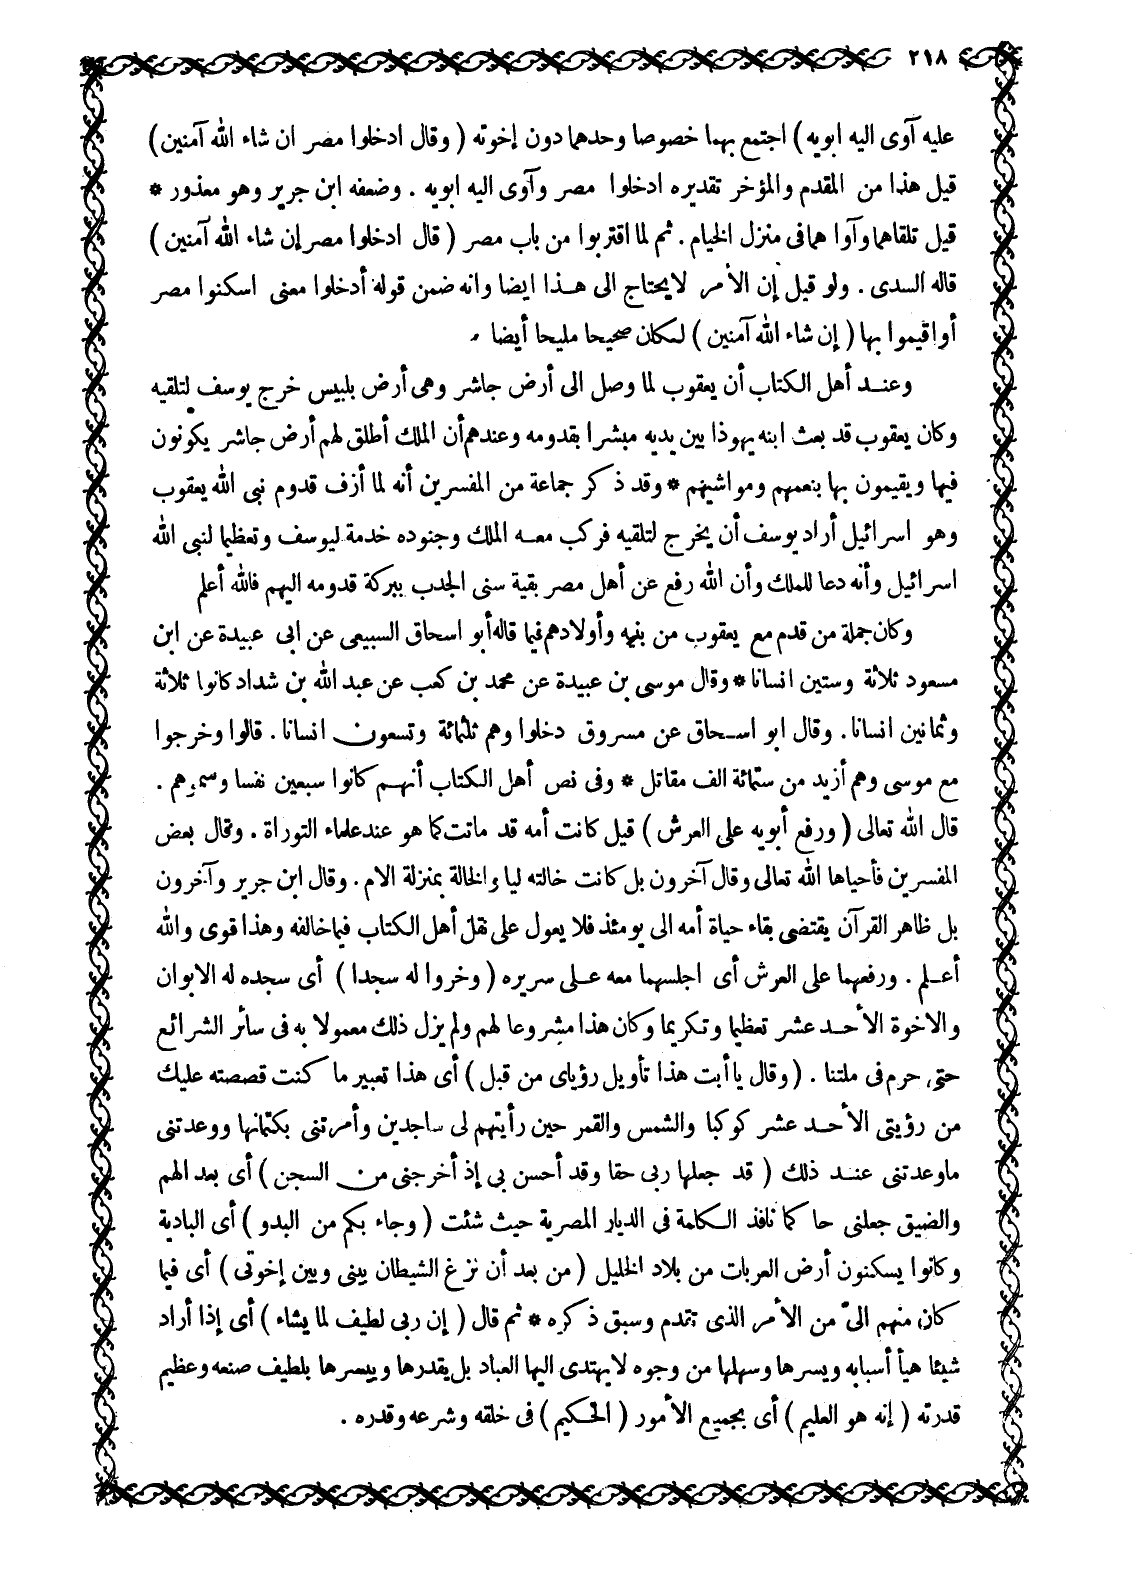 ٢١٨
عليه آوى اليه ابويه ) اجتمع بهما خصوصا وحدهما دون إخوته ( وقال ادخلوا مصر ان شاء الله آمنين )
قيل هذا من المقدم والمؤخر تقديره ادخلوا مصر وآوى اليه ابويه . وضعفه ابن جرير وهو معذور *
قيل تلقاهما وآوا هما فى منزل الخيام . ثم لما اقتربوا من باب مصر ( قال ادخلوا مصر إن شاء الله آمنين )
قاله السدى . ولو قيل إن الأمر لا يحتاج الى هـذا ايضا وانه ضمن قوله أدخلوا معنى اسكنوا مصر
أو اقيموا بها ( إن شاء الله آمنين ) لكان صحيحا مليحا أيضا .
وعنـد أهل الكتاب أن يعقوب لما وصل الى أرض جاشر وهى أرض بلبيس خرج يوسف لتلقيه
وكان يعقوب قد بعث ابنه يهوذا بين يديه مبشرا بقدومه وعندهم أن الملك أطلق لهم أرض جاشر يكونون
فيها ويقيمون بها بنعمهم ومواشيهم * وقد ذكر جماعة من المفسرين أنه لما أزف قدوم نبى الله يعقوب
وهو اسرائيل أراد يوسف أن يخرج لتلقيه فركب معـه الملك وجنوده خدمة ليوسف وتعظيما لنبى الله
اسرائيل وأنه دعا للملك وأن الله رفع عن أهل مصر بقية سنى الجدب ببركة قدومه اليهم فالله أعلم
وكان جملة من قدم مع يعقوب من بنيه وأولادهم فيما قاله أبو اسحاق السبيعى عن ابى عبيدة عن ابن
مسعود ثلاثة وستين انسانا * وقال موسى بن عبيدة عن محمد بن كعب عن عبد الله بن شداد كانوا ثلاثة
وثمانين انسانا . وقال ابو اسـحاق عن مسروق دخلوا وهم ثلثمائة وتسعون انسانا . قالوا وخرجوا
مع موسى وهم أزيد من ستمائة الف مقاتل * وفى نص أهل الكتاب أنهـم كانوا سبعين نفسا وسموهم .
قال الله تعالى ( ورفع أبويه على العرش ) قيل كانت أمه قد ماتت كما هو عند علماء التوراة . وقال بعض
المفسرين فأحياها الله تعالى وقال آخرون بل كانت خالته ليا والخالة بمنزلة الام . وقال ابن جرير وآخرون
بل ظاهر القرآن يقتضى بقاء حياة أمه الى يومئذ فلا يعول على نقل أهل الكتاب فيما خالفه وهذا قوى والله
أعـلم . ورفعهما على العرش أى اجلسهما معه عـلى سريره ( وخروا له سجدا ) أى سجده له الابوان
والاخوة الأحـد عشر تعظيما وتكريما وكان هذا مشروعا لهم ولم يزل ذلك معمولا به فى سائر الشرائع
حتى حرم فى ملتنا . ( وقال يا أبت هذا تأويل رؤياى من قبل ) أى هذا تعبير ما كنت قصصته عليك
من رؤيتى الأحـد عشر كوكبا والشمس والقمر حين رأيتهم لى ساجدين وأمرتنى بكتمانها ووعدتنى
ما وعدتنى عنـد ذلك ( قد جعلها ربى حقا وقد أحسن بى إذ أخرجنى من السجن ) أى بعد الهم
والضيق جعلنى حا كما نافذ الـكلمة فى الديار المصرية حيث شئت ( وجاء بكم من البدو ) أى البادية
وكانوا يسكنون أرض العربات من بلاد الخليل ( من بعد أن نزغ الشيطان بينى وبين إخوتى ) أى فيما
كان منهم الىّ من الأمر الذى تقدم وسبق ذكره * ثم قال ( إن ربى لطيف لما يشاء ) أى إذا أراد
شيئا هيأ أسبابه ويسرها وسهلها من وجوه لا يهتدى اليها العباد بل يقدرها وييسرها بلطيف صنعه وعظيم
قدرته ( إنه هو العليم ) أى بجميع الأمور ( الحـكيم ) فى خلقه وشرعه وقدره .